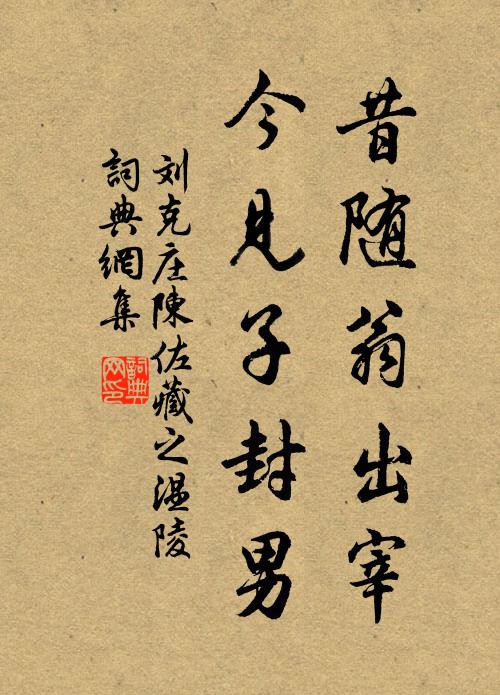 昔随翁出宰
今見子封男
刘克庄陳佐藏之溫陵
詞典網集
詞典
网印